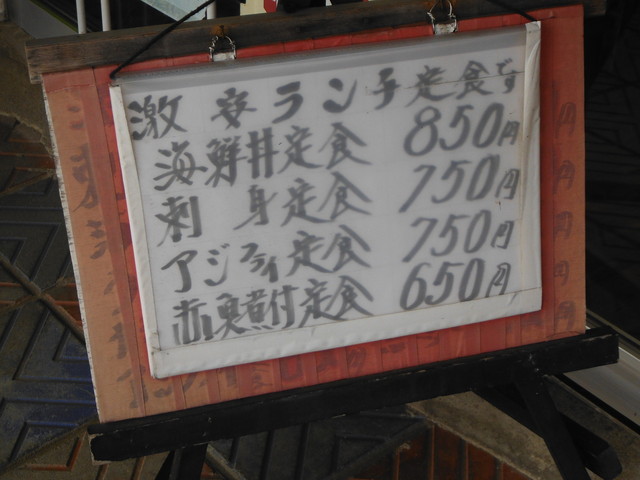 激安ランチ定食です
海鮮丼定食 850円
刺身定食 750円
アジフライ定食 750円
赤魚煮付定食 650円